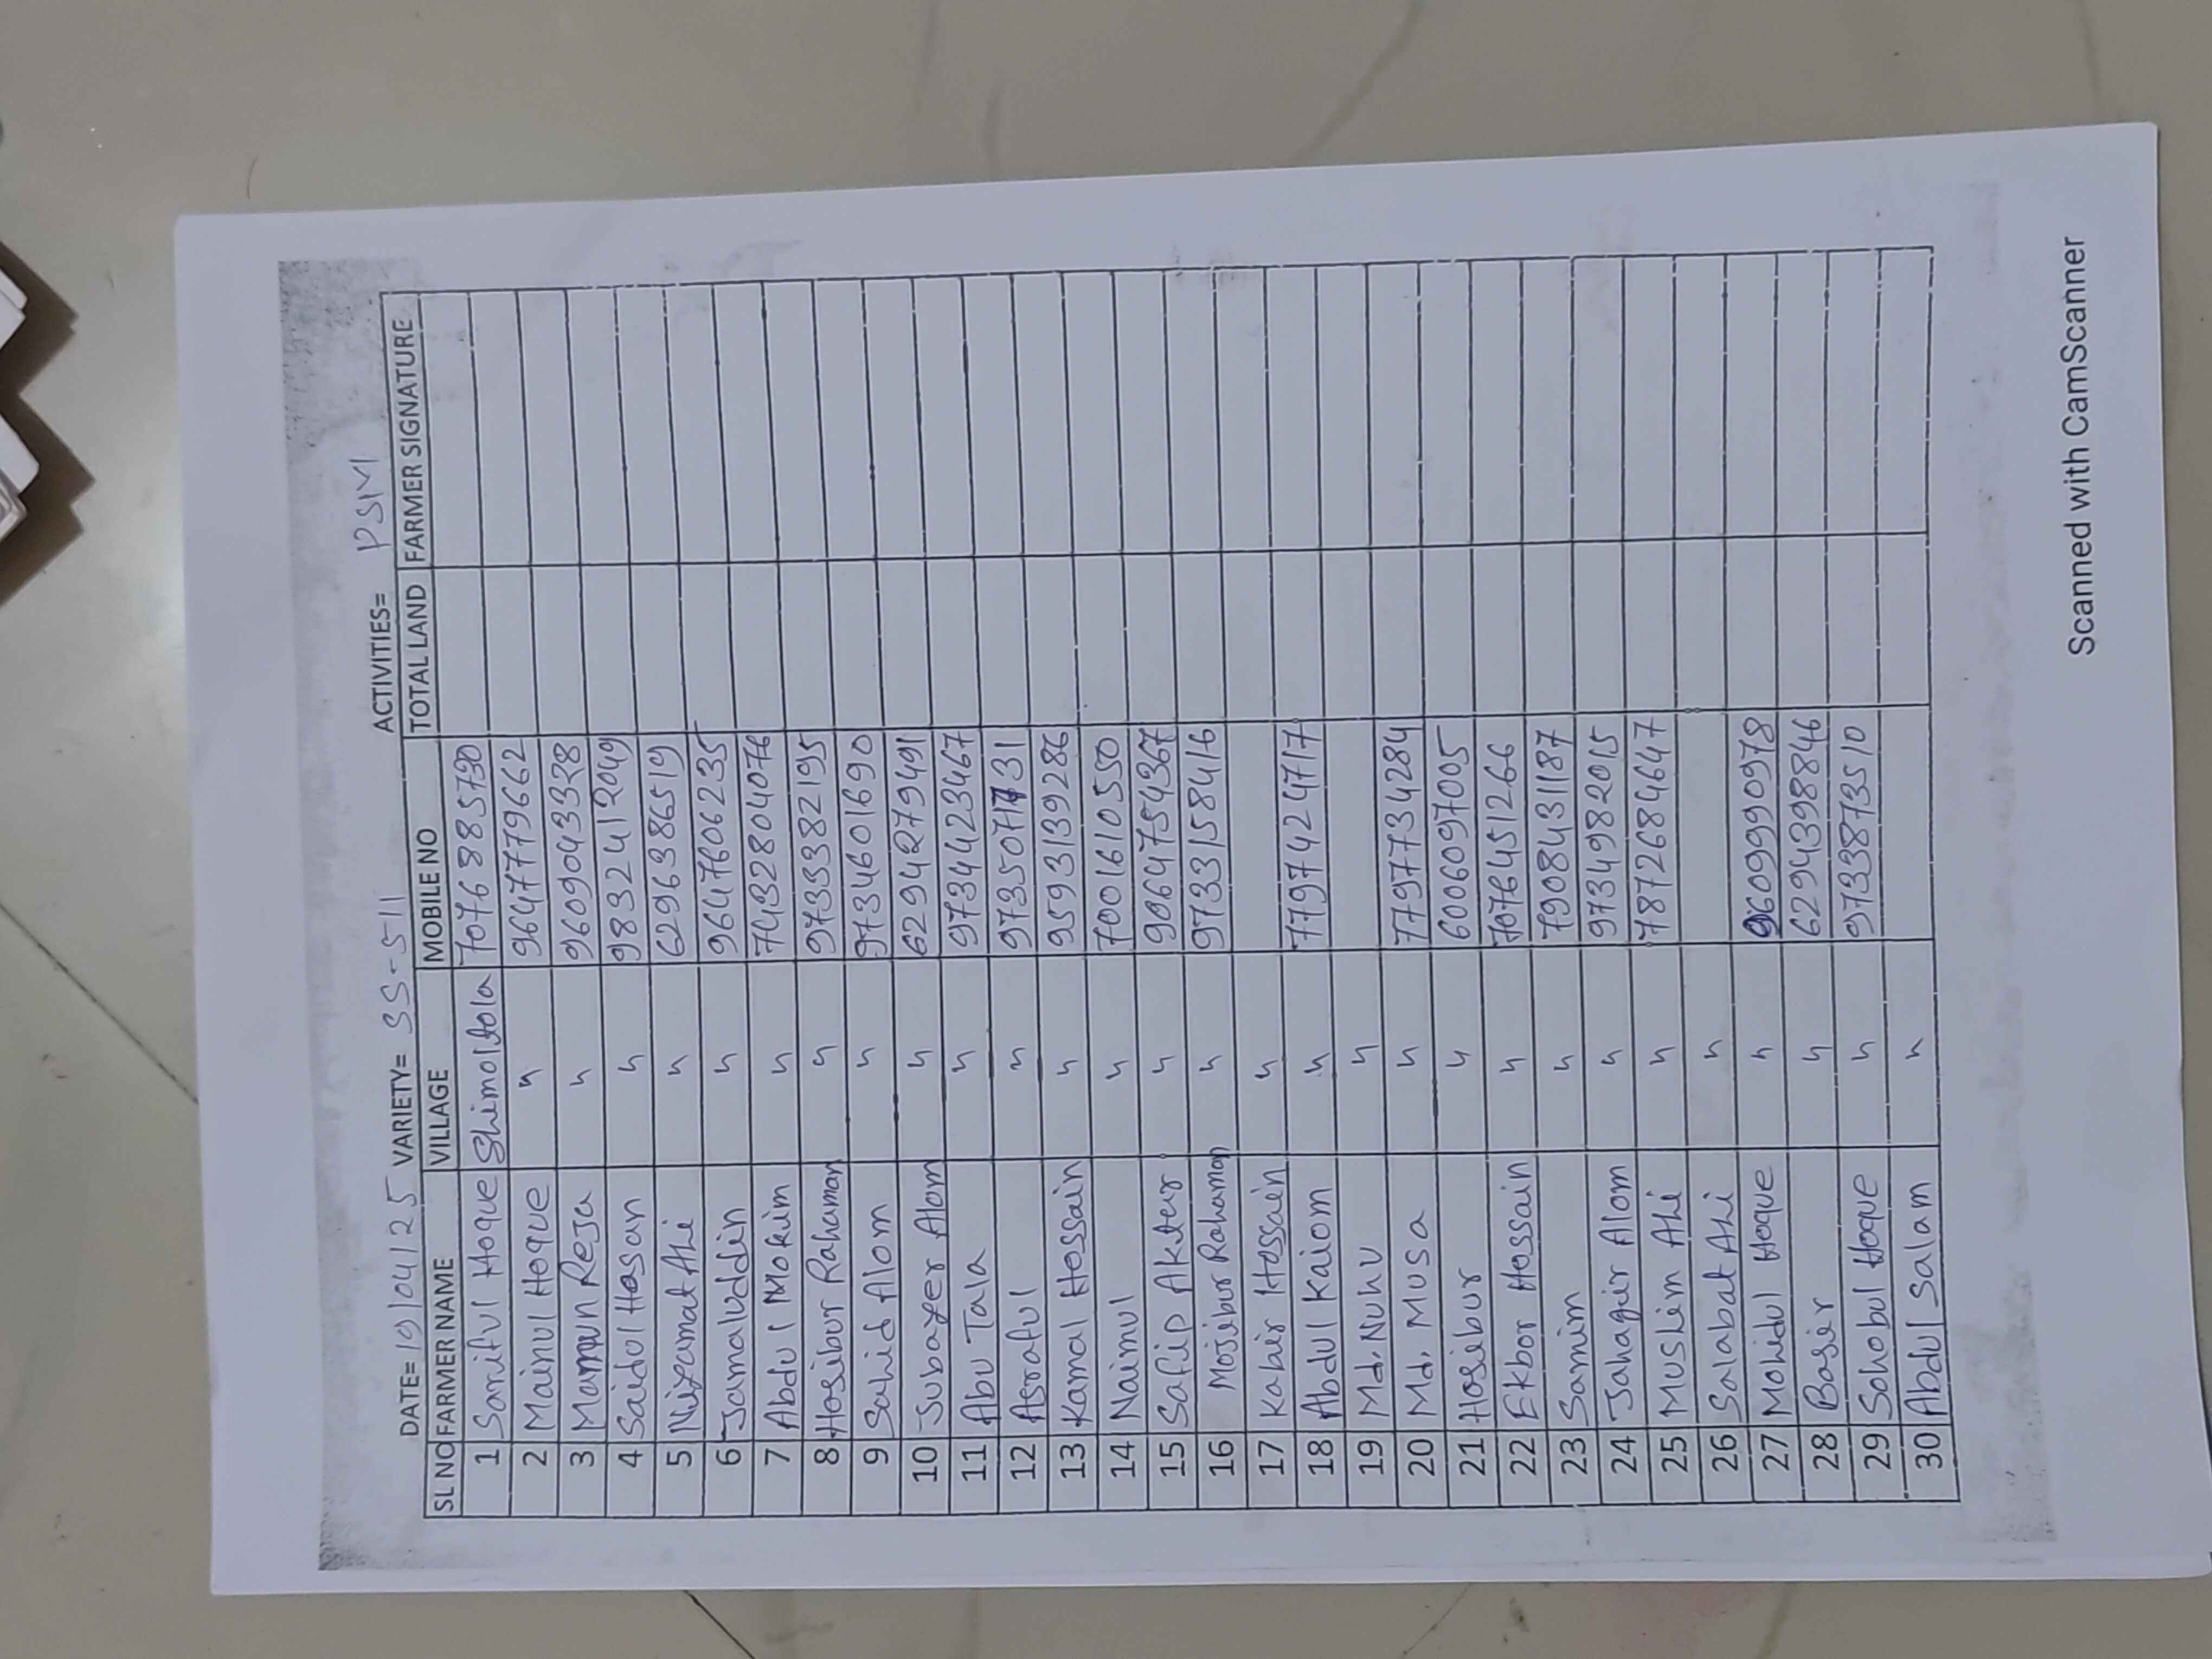 DATE= 19/04/25 VARIETY= SS-511 ACTIVITIES= PSM
SL NO FARMER NAME VILLAGE MOBILE NO TOTAL LAND FARMER SIGNATURE
1 Soniful Hoque Shimoltola 7076885730
2 Mainul Hoque " 9647779662
3 Mamun Reja " 9609043328
4 Saidul Hasan " 9832412049
5 Nizamat Ali " 6296386519
6 Jamaluddin " 9647606235
7 Abdul Mokim " 7432804076
8 Hosibur Rahaman " 9733382195
9 Sahid Alom " 9734601690
10 Jubayer Alom " 6294279491
11 Abu Tala " 9734423467
12 Asraful " 973507131
13 Kamal Hossain " 9593139286
14 Naimul " 7001610550
15 Safip Akter " 9064754367
16 Mojibur Rahaman " 9733158416
17 Kabir Hossain "
18 Abdul Kaiom " 7797424717
19 Md. Nuhu "
20 Md. Musa " 7797734284
21 Hosibur " 6006097005
22 Ekbor Hossain " 7076451266
23 Samim " 7908431187
24 Jahagir Alom " 9734982015
25 Muslim Ali " 7872684647
26 Salabat Ali "
27 Mohidul Hoque " 9609990978
28 Basir " 6294398846
29 Sohobul Hoque " 9733873510
30 Abdul Salam "
Scanned with CamScanner